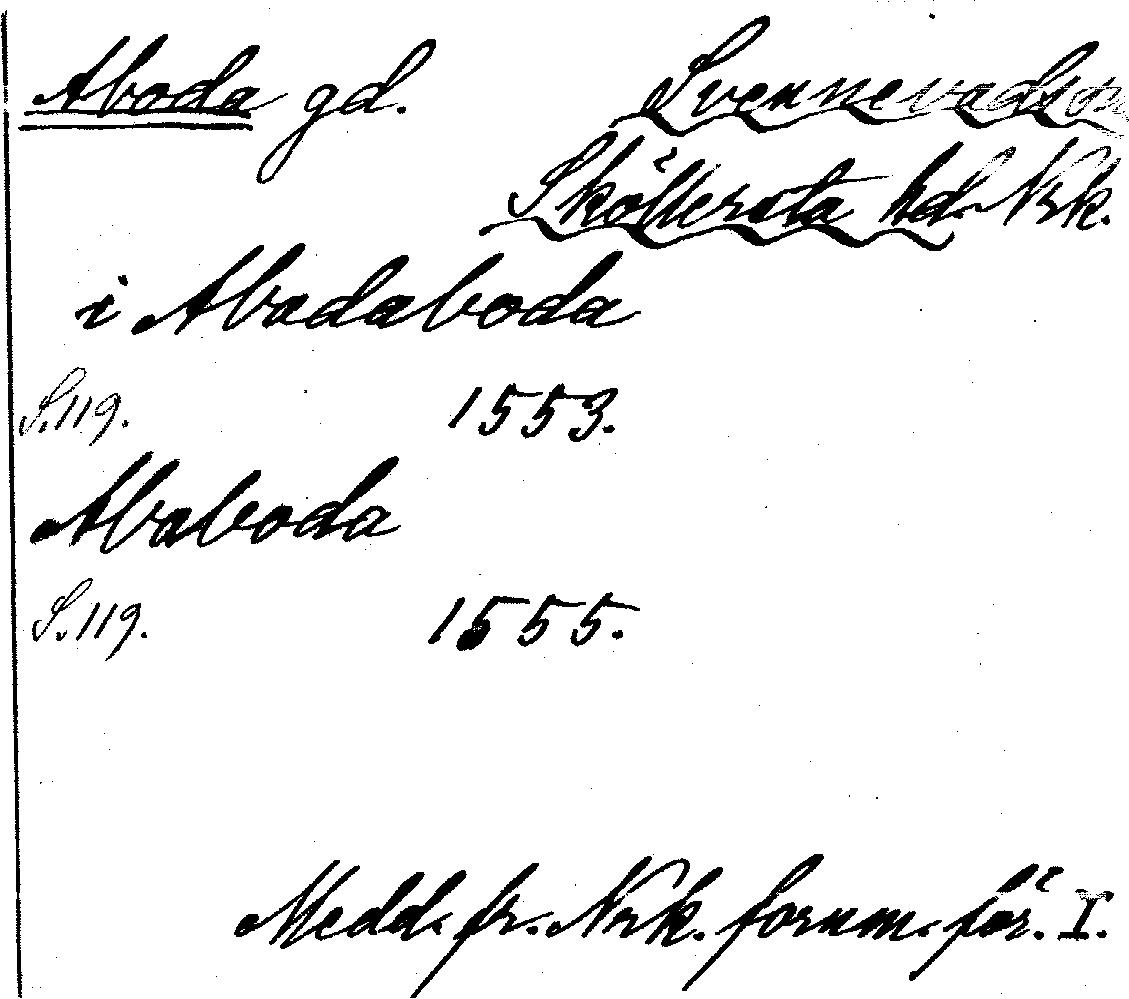 Aboda gd. Svennevads sn
Sköllersta hd. Nrk.
i Abadaboda
S. 119. 1553.
Ababoda
S. 119. 1555.
Medd. fr. Nrk. fornm. för. I.